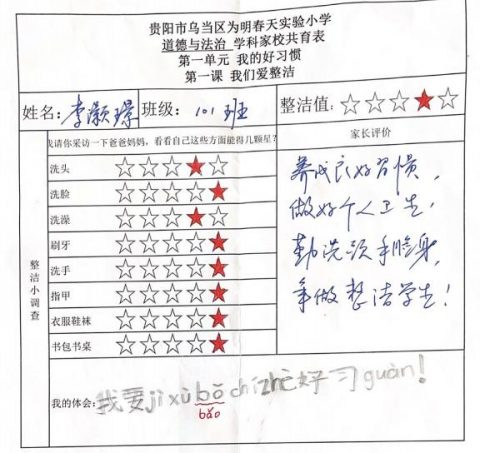 贵阳市乌当区为明春天实验小学
道德与法治 学科家校共育表
第一单元 我的好习惯
第一课 我们爱整洁
姓名: 李颢璟 班级: 101班 整洁值: ☆☆☆★☆
我请你采访一下爸爸妈妈,看看自己这些方面能得几颗星?
家长评价
整洁小调查
洗头 ☆☆☆★☆
洗脸 ☆☆☆☆★
洗澡 ☆☆☆★☆
刷牙 ☆☆☆☆★
洗手 ☆☆☆☆★
指甲 ☆☆☆☆★
衣服鞋袜 ☆☆☆☆★
书包书桌 ☆☆☆☆★
养成良好习惯,
做好个人卫生,
勤洗头手脸身,
争做整洁学生!
我的体会: 我要jìxùbǒchízhē好习guàn!
bǎo